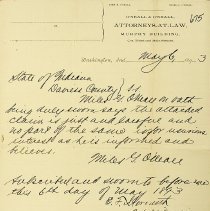 O'NEALL & O'NEALL
ATTORNEYS-AT-LAW,
MURPHY BUILDING,
Washington, Ind., May 6, 3
State of Indiana
Daviess County } SS
Miles G. O'Neall on oath
being duly sworn says the attached
claim is just and lawful and
no part of the same is for usurious
interest as he is informed and
believes.
Miles G. O'Neall
Subscribed and sworn to before me
this 6th day of May 1893